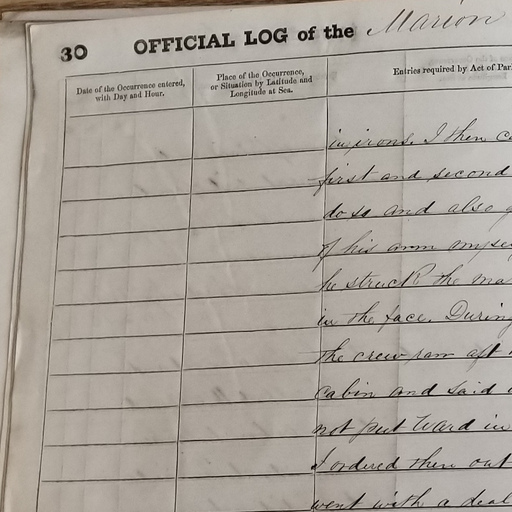 30 OFFICIAL LOG of the Marion
Date of the Occurrence entered, with Day and Hour.
Place of the Occurrence, or Situation by Latitude and Longitude at Sea.
Entries required by Act of Par
in irons. I then c
first and second
do so and also
of his arm myse
he struck the ma
in the face. During
the crew ran aft
cabin and said
not put Ward in
I ordered them out
went with a deal